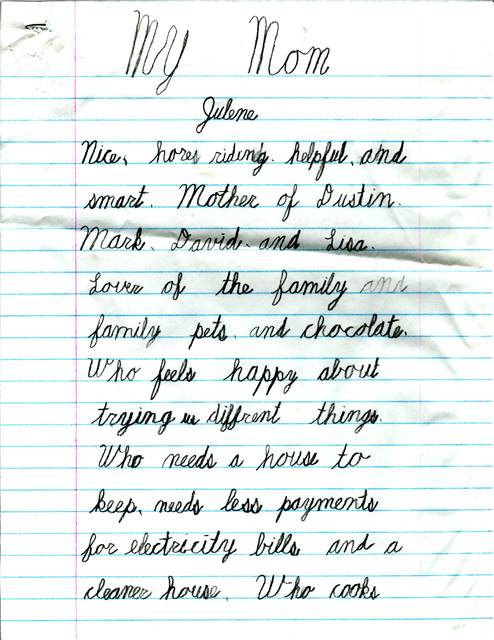 My Mom
Julene
Nice, hores riding, helpful, and
smart. Mother of Dustin.
Mark, David, and Lisa.
Lover of the family and
family pets, and chocolate.
Who feels happy about
trying diffrent things.
Who needs a house to
keep, needs less payments
for electricity bills and a
cleaner house. Who cooks